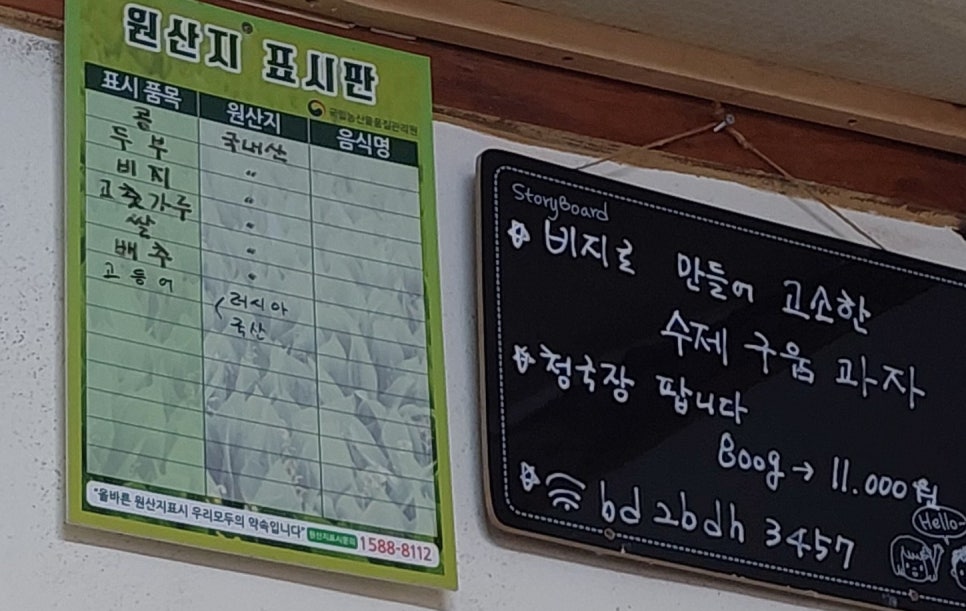 원산지 표시판
표시 품목 원산지 음식명
국립농산물품질관리원
콩 국내산
두부 〃
비지 〃
고춧가루 〃
쌀 〃
배추
고등어 러시아
국산
"올바른 원산지표시 우리모두의 약속입니다" 원산지표시문의 1588-8112
StoryBoard
비지로 만들어 고소한
수제 구움 과자
청국장 팝니다
800g → 11.000원
bd2bdh3457
Hello~